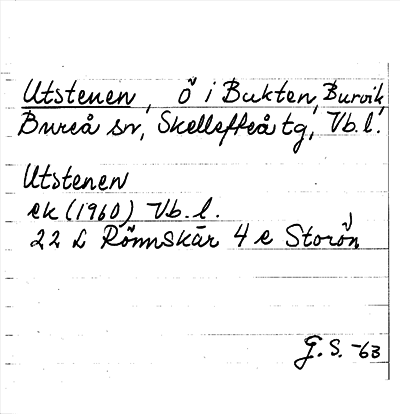 Utstenen, ö i Bukten, Burvik,
Bureå sn, Skellefteå tg, Vb.l.
Utstenen
ek (1960) Vb.l.
22 L Rönnskär 4 e Storön
G.S. -63